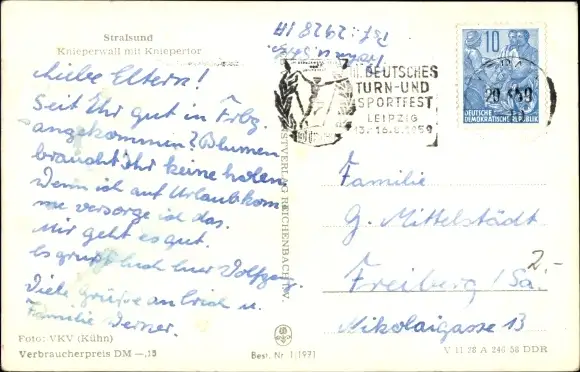 Stralsund
Knieperwall mit Kniepertor
Liebe Eltern!
Seit Ihr gut in Frbg.
angekommen? Blumen
braucht Ihr keine holen.
Wenn ich auf Urlaub kom
me versorge ich das.
Mir geht es gut.
Es grüßt Euch Euer Wolfgang
Viele Grüße an Erich u.
Familie Werner.
Foto: VKV (Kühn)
Verbraucherpreis DM —,15
Best. Nr. 1(1991
KUNSTVERLAG REICHENBACH/V
Psf. 2928 1A
III. DEUTSCHES
TURN-UND
SPORTFEST
LEIPZIG
13.-16.8.1959
10
DEUTSCHE
DEMOKRATISCHE REPUBLIK
Familie
G. Mittelstädt
Freiberg / Sa.
2.-
Nikolaigasse 13
V H 28 A 246 58 DDR